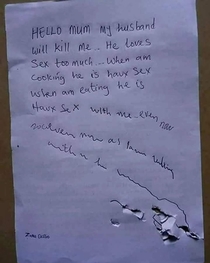 HELLO MUM my husband
will kill me... He loves
Sex too much... When am
cooking he is havx sex
when am eating he is
Havx Sex with me even now
as I am